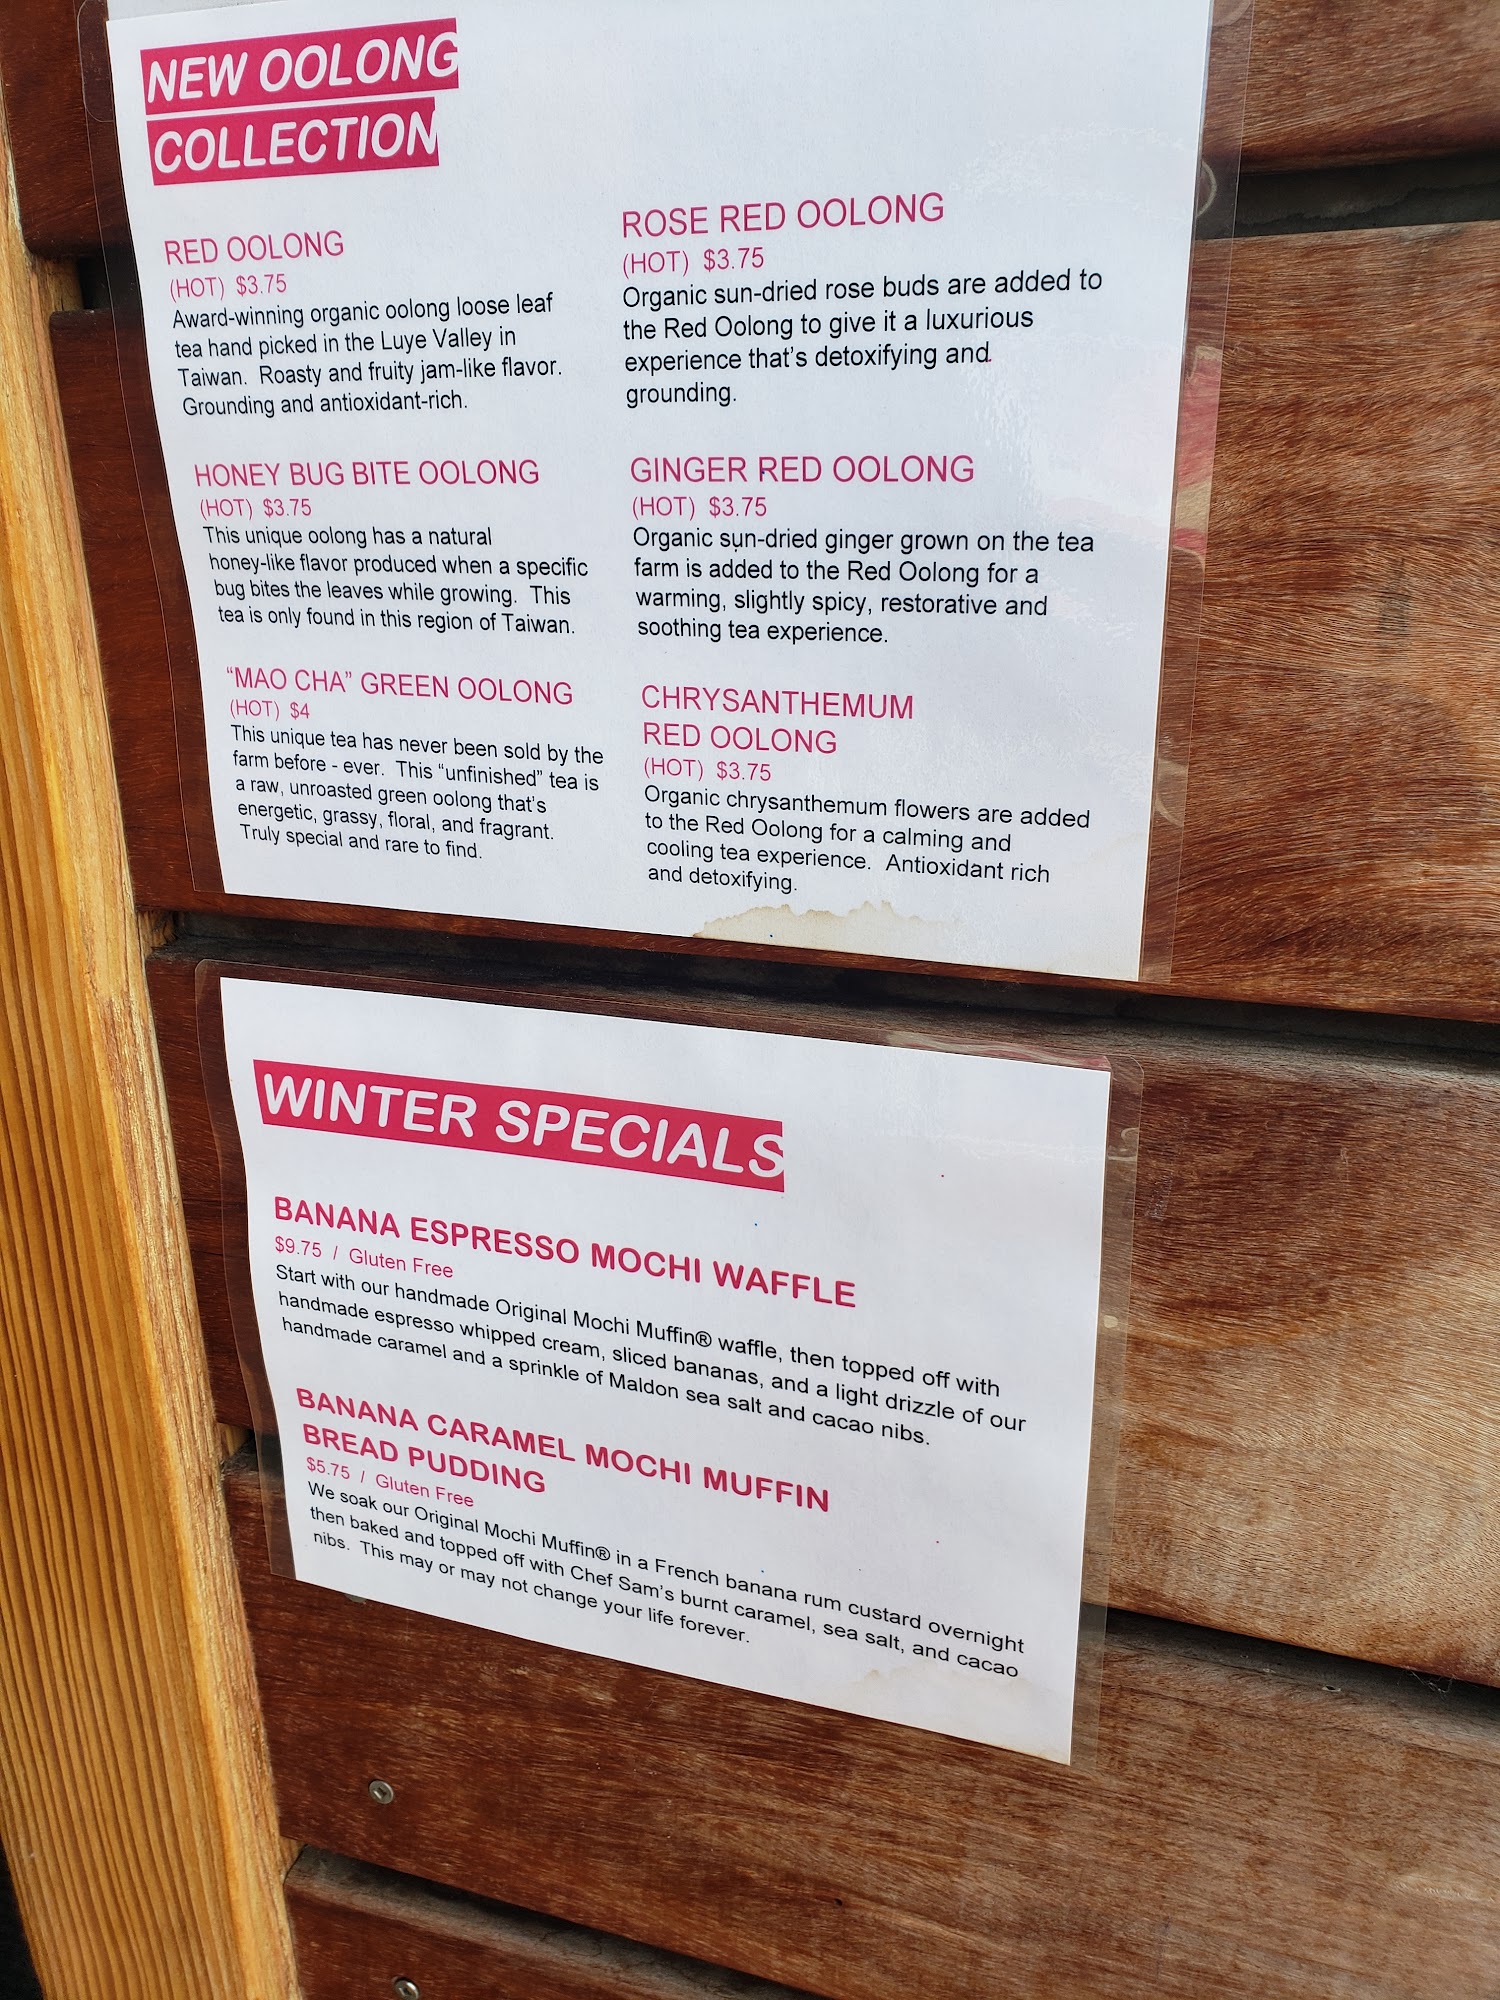 NEW OOLONG
COLLECTION
RED OOLONG
(HOT) $3.75
Award-winning organic oolong loose leaf
tea hand picked in the Luye Valley in
Taiwan. Roasty and fruity jam-like flavor.
Grounding and antioxidant-rich.
HONEY BUG BITE OOLONG
(HOT) $3.75
This unique oolong has a natural
honey-like flavor produced when a specific
bug bites the leaves while growing. This
tea is only found in this region of Taiwan.
"MAO CHA" GREEN OOLONG
(HOT) $4
This unique tea has never been sold by the
farm before - ever. This "unfinished" tea is
a raw, unroasted green oolong that's
energetic, grassy, floral, and fragrant.
Truly special and rare to find.
ROSE RED OOLONG
(HOT) $3.75
Organic sun-dried rose buds are added to
the Red Oolong to give it a luxurious
experience that's detoxifying and
grounding.
GINGER RED OOLONG
(HOT) $3.75
Organic sun-dried ginger grown on the tea
farm is added to the Red Oolong for a
warming, slightly spicy, restorative and
soothing tea experience.
CHRYSANTHEMUM
RED OOLONG
(HOT) $3.75
Organic chrysanthemum flowers are added
to the Red Oolong for a calming and
cooling tea experience. Antioxidant rich
and detoxifying.
WINTER SPECIALS
BANANA ESPRESSO MOCHI WAFFLE
$9.75 / Gluten Free
Start with our handmade Original Mochi Muffin® waffle, then topped off with
handmade espresso whipped cream, sliced bananas, and a light drizzle of our
handmade caramel and a sprinkle of Maldon sea salt and cacao nibs.
BANANA CARAMEL MOCHI MUFFIN
BREAD PUDDING
$5.75 / Gluten Free
We soak our Original Mochi Muffin® in a French banana rum custard overnight
then baked and topped off with Chef Sam's burnt caramel, sea salt, and cacao
nibs. This may or may not change your life forever.